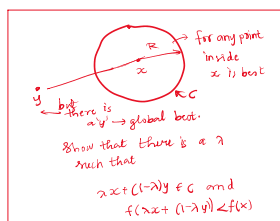 for any point
inside
x is best
R
x
y
C
but
there is
a 'y' → global best.
Show that there is a λ
such that
λx + (1-λ)y ∈ C and
f(λx + (1-λ)y) < f(x)